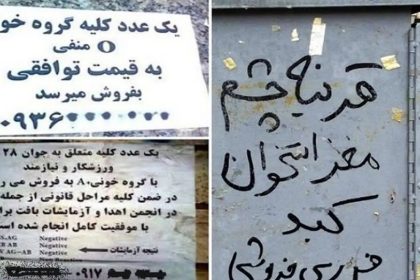 یک عدد کلیه گروه خو
O منفی
به قیمت توافقی
بفروش میرسد
۰۹۳۶
یک عدد کلیه متعلق به جوان ۲۸
ورزشکار و نیازمند
با گروه خونی A، به فروش می ر
در ضمن کلیه مراحل قانونی از جمله
در انجمن اهدا و آزمایشات بافت برای
با موفقیت کامل انجام شده است
S.AG Negative
AB Negative
Negative
نتیجه آزمایشات
۰۹۱۷
قرنیه چشم
مغز استخوان
کبد
فوری فروشی